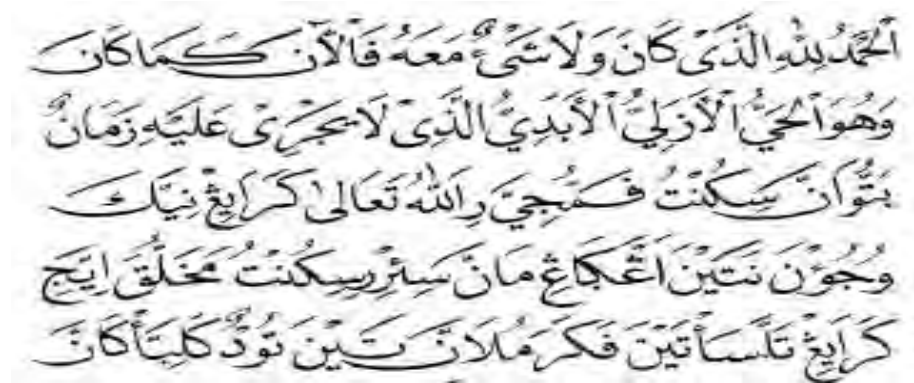 اَلْحَمْدُ لِلّٰهِ الَّذِىْ كَانَ وَلَا شَىْءٌ مَعَهُ فَالْآنَ كَمَا كَانَ
وَهُوَ الْحَيُّ الْأَزَلِيُّ الْأَبَدِيُّ الَّذِى لَا يَجْرِىْ عَلَيْهِ زَمَانٌ
بَتُّوَانَّ سِكُنْتُ فَمُّجِيَ رِاَللّٰهُ تَعَالٰى كَرَايڠْ نِيَّكَ
وُجُوْنَ نَتَيْنَ مَانَّ سِئِرِ رِسِكُنْتُ مَخَلُّقَ اِيَّجِ
كَرَايڠْ تَلَّسَأْ تَيْنَ فَكَرَمُلَانَّ تَيْنَ